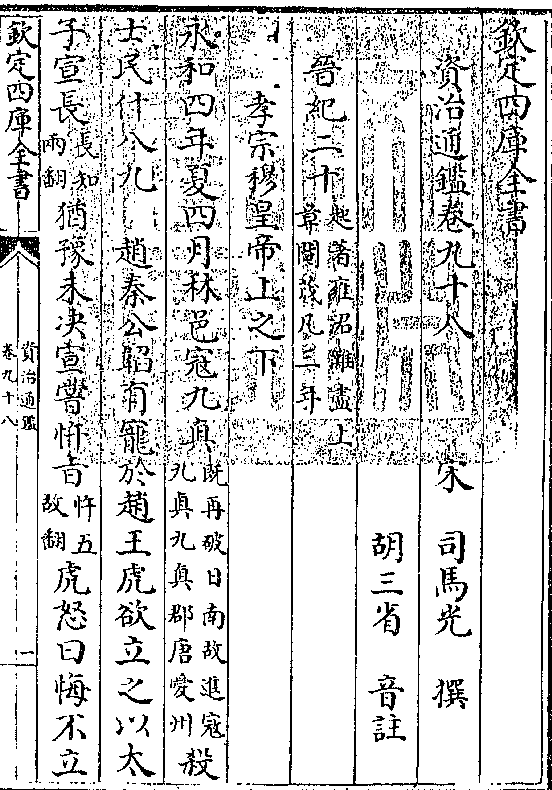 欽定四庫全書
資治通鑑卷九十八 宋 司馬光 撰
胡三省 音註
晉紀二十 起著雍涒灘盡上章閹茂凡三年
孝宗穆皇帝上之下
永和四年夏四月林邑寇九真 既再破日南故進寇九真九真郡唐愛州 殺
士民什八九 趙秦公韜有寵於趙王虎欲立之以太
子宣長 長知兩翻 猶豫未决宣嘗忤旨 忤五故翻 虎怒曰悔不立
欽定四庫全書
資治通鑑
卷九十八
一